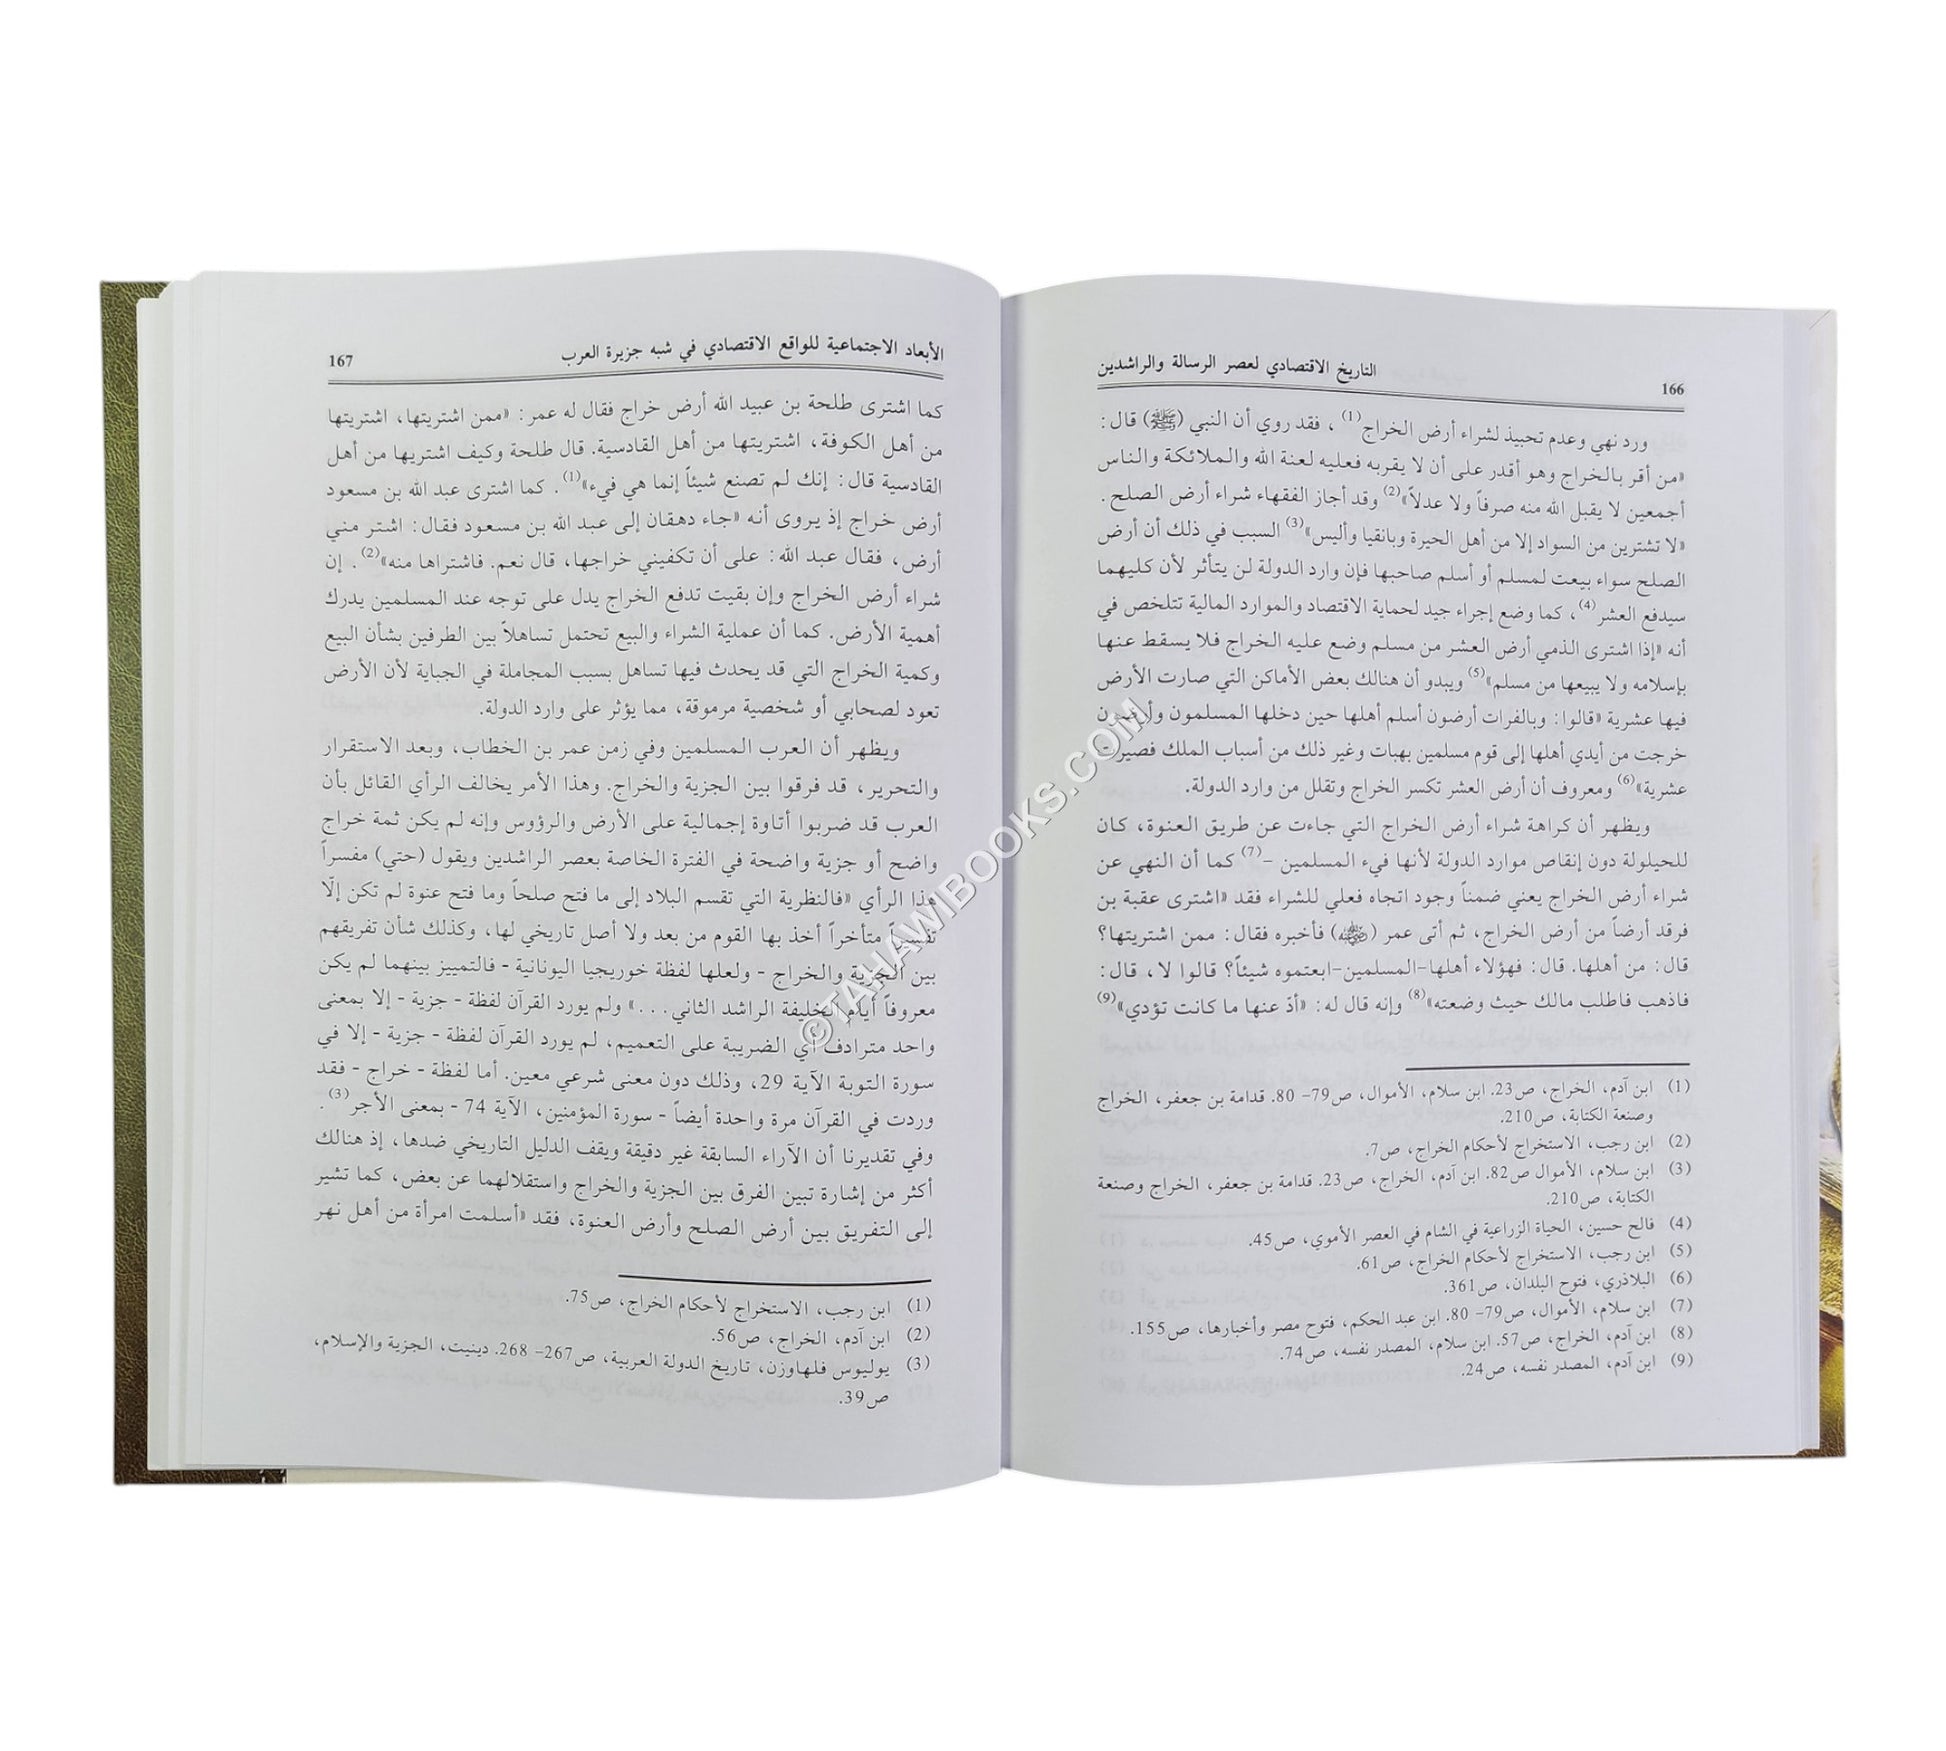 166
التاريخ الاقتصادي لعصر الرسالة والراشدين
ورد نهي وعدم تحبيذ لشراء أرض الخراج(1)، فقد روي أن النبي (ﷺ) قال:
«من أقر بالخراج وهو أقدر على أن لا يقربه فعليه لعنة الله والملائكة والناس
أجمعين لا يقبل الله منه صرفاً ولا عدلاً»(2) وقد أجاز الفقهاء شراء أرض الصلح.
«لا تشترين من السواد إلا من أهل الحيرة وبانقيا وأليس»(3) السبب في ذلك أن أرض
الصلح سواء بيعت لمسلم أو أسلم صاحبها فإن وارد الدولة لن يتأثر لأن كليهما
سيدفع العشر(4)، كما وضع إجراء جيد لحماية الاقتصاد والموارد المالية تتلخص في
أنه «إذا اشترى الذمي أرض العشر من مسلم وضع عليه الخراج فلا يسقط عنها
بإسلامه ولا يبيعها من مسلم»(5) ويبدو أن هنالك بعض الأماكن التي صارت الأرض
فيها عشرية «قالوا: وبالفرات أرضون أسلم أهلها حين دخلها المسلمون وأرضون
خرجت من أيدي أهلها إلى قوم مسلمين بهبات وغير ذلك من أسباب الملك فصيرت
عشرية»(6) ومعروف أن أرض العشر تكسر الخراج وتقلل من وارد الدولة.
ويظهر أن كراهة شراء أرض الخراج التي جاءت عن طريق العنوة، كان
للحيلولة دون إنقاص موارد الدولة لأنها فيء المسلمين -(7) كما أن النهي عن
شراء أرض الخراج يعني ضمناً وجود اتجاه فعلي للشراء فقد «اشترى عقبة بن
فرقد أرضاً من أرض الخراج، ثم أتى عمر (رضي الله عنه) فأخبره فقال: ممن اشتريتها؟
قال: من أهلها. قال: فهؤلاء أهلها-المسلمين-ابعتموه شيئاً؟ قالوا لا، قال:
فاذهب فاطلب مالك حيث وضعته»(8) وإنه قال له: «أدّ عنها ما كانت تؤدي»(9)
(1) ابن آدم، الخراج، ص23. ابن سلام، الأموال، ص79- 80. قدامة بن جعفر، الخراج
وصنعة الكتابة، ص210.
(2) ابن رجب، الاستخراج لأحكام الخراج، ص7.
(3) ابن سلام، الأموال ص82. ابن آدم، الخراج، ص23. قدامة بن جعفر، الخراج وصنعة
الكتابة، ص210.
(4) فالح حسين، الحياة الزراعية في الشام في العصر الأموي، ص45.
(5) ابن رجب، الاستخراج لأحكام الخراج، ص61.
(6) البلاذري، فتوح البلدان، ص361.
(7) ابن سلام، الأموال، ص79- 80. ابن عبد الحكم، فتوح مصر وأخبارها، ص155.
(8) ابن آدم، الخراج، ص57. ابن سلام، المصدر نفسه، ص74.
(9) ابن آدم، المصدر نفسه، ص24.
الأبعاد الاجتماعية للواقع الاقتصادي في شبه جزيرة العرب
167
كما اشترى طلحة بن عبيد الله أرض خراج فقال له عمر: «ممن اشتريتها، اشتريتها
من أهل الكوفة، اشتريتها من أهل القادسية. قال طلحة وكيف اشتريها من أهل
القادسية قال: إنك لم تصنع شيئاً إنما هي فيء»(1). كما اشترى عبد الله بن مسعود
أرض خراج إذ يروى أنه «جاء دهقان إلى عبد الله بن مسعود فقال: اشتر مني
أرض، فقال عبد الله: على أن تكفيني خراجها، قال نعم. فاشتراها منه»(2). إن
شراء أرض الخراج وإن بقيت تدفع الخراج يدل على توجه عند المسلمين يدرك
أهمية الأرض. كما أن عملية الشراء والبيع تحتمل تساهلاً بين الطرفين بشأن البيع
وكمية الخراج التي قد يحدث فيها تساهل بسبب المجاملة في الجباية لأن الأرض
تعود لصحابي أو شخصية مرموقة، مما يؤثر على وارد الدولة.
ويظهر أن العرب المسلمين وفي زمن عمر بن الخطاب، وبعد الاستقرار
والتحرير، قد فرقوا بين الجزية والخراج. وهذا الأمر يخالف الرأي القائل بأن
العرب قد ضربوا أتاوة إجمالية على الأرض والرؤوس وإنه لم يكن ثمة خراج
واضح أو جزية واضحة في الفترة الخاصة بعصر الراشدين ويقول (حتي) مفسراً
هذا الرأي «فالنظرية التي تقسم البلاد إلى ما فتح صلحاً وما فتح عنوة لم تكن إلّا
تفسيراً متأخراً أخذ بها القوم من بعد ولا أصل تاريخي لها، وكذلك شأن تفريقهم
بين الجزية والخراج - ولعلها لفظة خوريجيا اليونانية - فالتمييز بينهما لم يكن
معروفاً أيام الخليفة الراشد الثاني...» ولم يورد القرآن لفظة - جزية - إلا بمعنى
واحد مترادف أي الضريبة على التعميم، لم يورد القرآن لفظة - جزية - إلا في
سورة التوبة الآية 29، وذلك دون معنى شرعي معين. أما لفظة - خراج - فقد
وردت في القرآن مرة واحدة أيضاً - سورة المؤمنين، الآية 74 - بمعنى الأجر(3).
وفي تقديرنا أن الآراء السابقة غير دقيقة ويقف الدليل التاريخي ضدها، إذ هنالك
أكثر من إشارة تبين الفرق بين الجزية والخراج واستقلالهما عن بعض، كما تشير
إلى التفريق بين أرض الصلح وأرض العنوة، فقد «أسلمت امرأة من أهل نهر
(1) ابن رجب، الاستخراج لأحكام الخراج، ص75.
(2) ابن آدم، الخراج، ص56.
(3) يوليوس فلهاوزن، تاريخ الدولة العربية، ص267- 268. دينيت، الجزية والإسلام،
ص39.
©TAHAWIBOOKS.COM